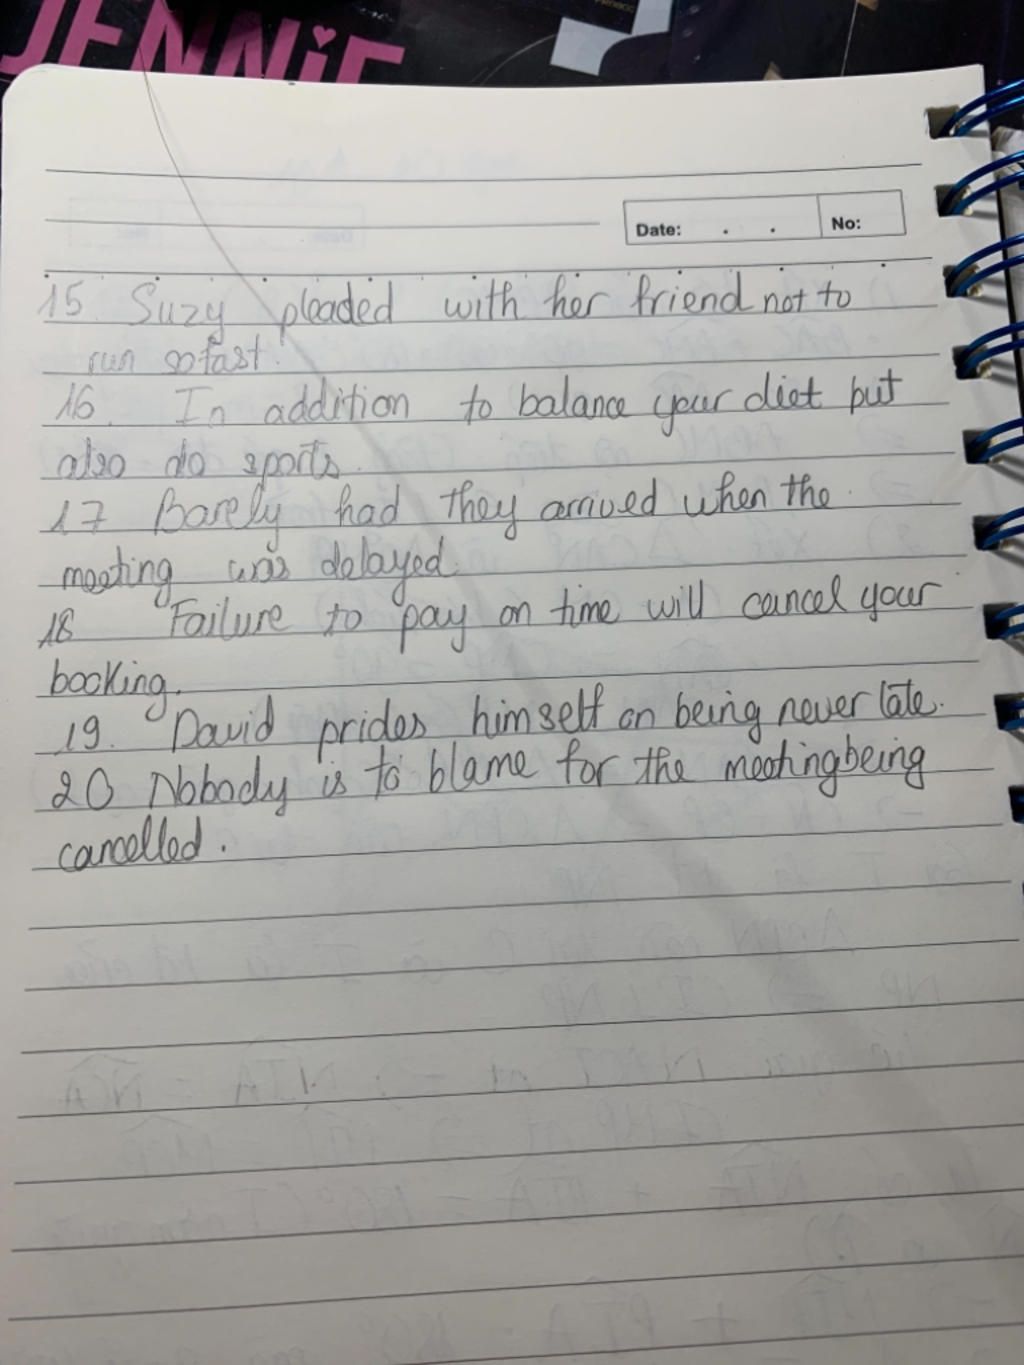 JENNiE
Date: . . No:
15. Suzy pleaded with her friend not to
run so fast.
16. In addition to balance your diet but
also do sports.
17 Barely had they arrived when the
meeting was delayed.
18 Failure to pay on time will cancel your
booking.
19. David prides himself on being never late.
20 Nobody is to blame for the meeting being
cancelled.